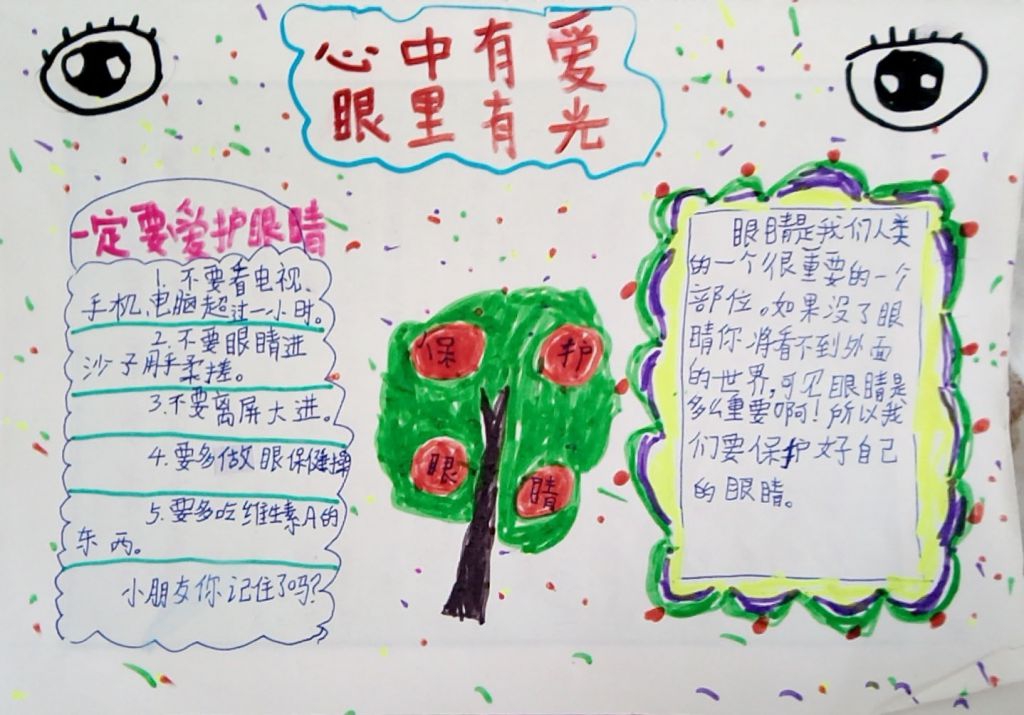 心中有爱
眼里有光
一定要爱护眼睛
1.不要看电视、
手机、电脑超过一小时。
2.不要眼睛进
沙子用手柔搓。
3.不要离屏大进。
4.要多做眼保健操
5.要多吃维生素A的
东西。
小朋友你记住了吗?
保
护
眼
睛
眼睛是我们人类
的一个很重要的一个
部位。如果没了眼
睛你将看不到外面
的世界,可见眼睛是
多么重要啊!所以我
们要保护好自己
的眼睛。